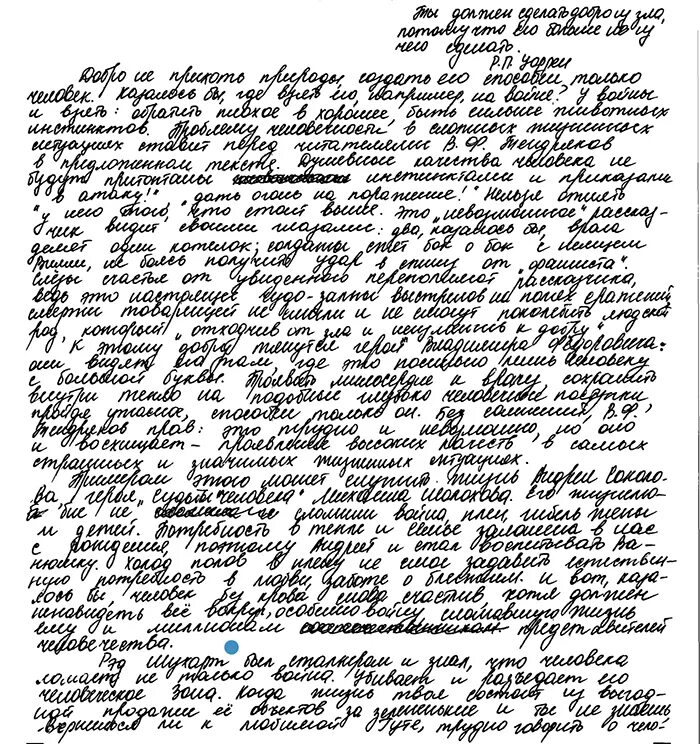 Ты должен сделать добро из зла,
потому что его больше не из
чего сделать.
Р.П. Уоррен
Добро не прихоть природы, создать его способен только
человек. Казалось бы, где взять его, например, на войне? У войны
и взять: обратить плохое в хорошее, быть сильнее животных
инстинктов. Проблему человечности в сложных жизненных
ситуациях ставит перед читателями В.Ф. Тендряков
в предложенном тексте. Душевные качества человека не
будут притоптаны инстинктами и приказами
"в атаку!" "дать огонь на поражение!" Нельзя отнять
у него того, что стоит выше. Это "невозможное" рассказ-
чик видит своими глазами: два, казалось бы, врага
делят один котелок; солдаты спят бок о бок с немцем
Вилли, не боясь получить удар в спину от "фашиста".
Слёзы счастья от увиденного переполняют рассказчика,
ведь это настоящее чудо - залпы выстрелов на полях сражений,
смерти товарищей не смогли и не смогут поколебить людской
род, который "отходчив от зла и неизменно к добру".
К этому добру тянутся герои Владимира Фёдоровича:
они видят его там, где это посильно лишь Человеку
с большой буквы. Проявить милосердие к врагу, сохранить
внутри тепло на подобные глубоко человечные поступки
пройдя ужасное, способен только он. Без сомнения, В.Ф.
Тендряков прав: это трудно и невозможно, но оно
и восхищает – проявление высоких качеств в самых
страшных и значимых жизненных ситуациях.
Примером этого может служить жизнь Андрея Соколо-
ва героя "Судьбы человека" Михаила Шолохова. Его жизнелю-
бие не сломили война, плен, гибель жены
и детей. Потребность в тепле и семье заложена в нас
с рождения, поэтому Андрей и стал воспитывать Ва-
нюшку. Холод полов в плену не смог задавить естествен-
ную потребность в любви, заботе о ближнем. И вот, каза-
лось бы, человек без крова снова счастлив хотя должен
ненавидеть всё вокруг, особенно войну, сломавшую жизнь
ему и миллионам представителей
человечества.
Рэд Шухарт был сталкером и знал, что человека
ломает не только война. Убивает и разъедает его
человеческое Зона. Когда жизнь твоя состоит из выгод-
ной продажи её объектов за зелененькие и ты не знаешь
вернешься ли к любимой Гуте, трудно говорить о чело-